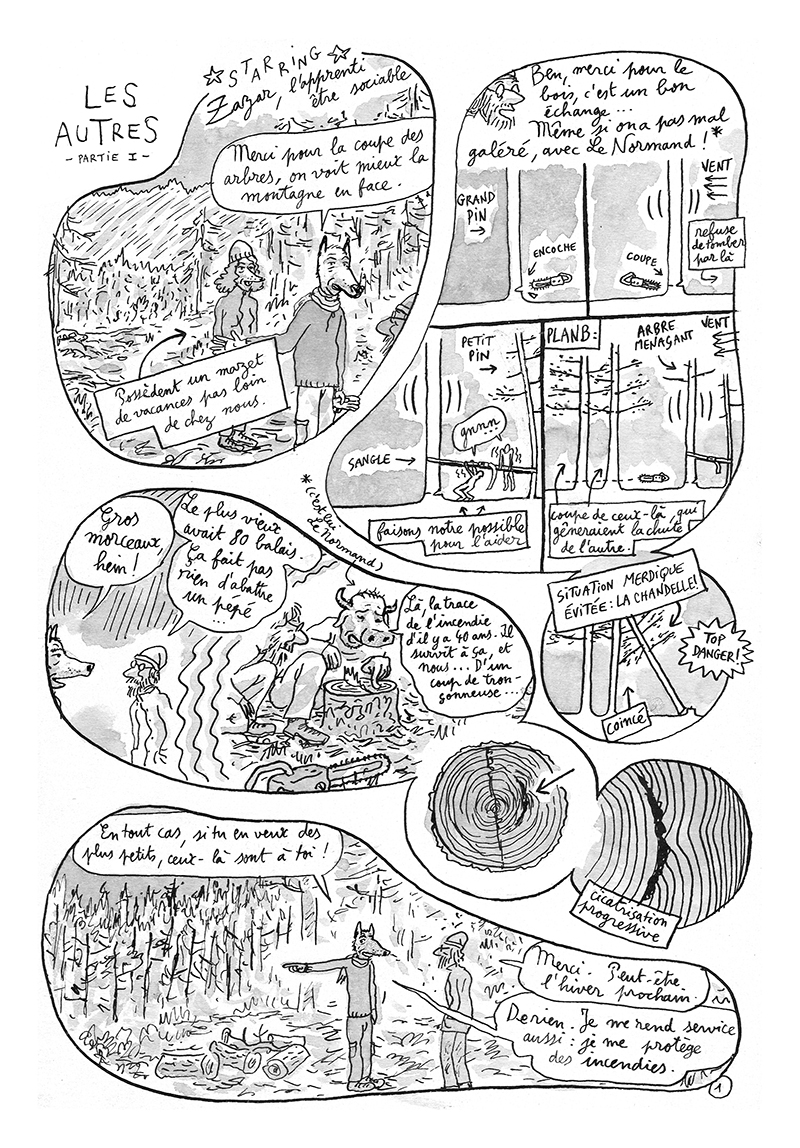 LES
AUTRES
- PARTIE I -
☆ STARRING ☆
Zazar, l'apprenti
être sociable
Merci pour la coupe des
arbres, on voit mieux la
montagne en face.
Possèdent un mazet
de vacances pas loin
de chez nous.
Ben, merci pour le
bois, c'est un bon
échange...
Même si on a pas mal
galéré, avec Le Normand !*
GRAND
PIN
ENCOCHE
COUPE
VENT
refuse
de tomber
par là
PETIT
PIN
gnnn
SANGLE
faisons notre possible
pour l'aider
PLAN B :
ARBRE
MENAÇANT
VENT
coupe de ceux-là, qui
gêneraient la chute
de l'autre.
* (c'est lui
Le Normand)
SITUATION MERDIQUE
ÉVITÉE : LA CHANDELLE !
TOP
DANGER !
COINCÉ
Gros
morceaux,
hein !
Le plus vieux
avait 80 balais.
Ça fait pas
rien d'abattre
un pépé
...
Là, la trace
de l'incendie
d'il y a 40 ans. Il
survit à ça, et
nous... D'un
coup de tron-
çonneuse...
cicatrisation
progressive
En tout cas, si tu en veux des
plus petits, ceux-là sont à toi !
Merci. Peut-être
l'hiver prochain.
De rien. Je me rend service
aussi : je me protège
des incendies.
1